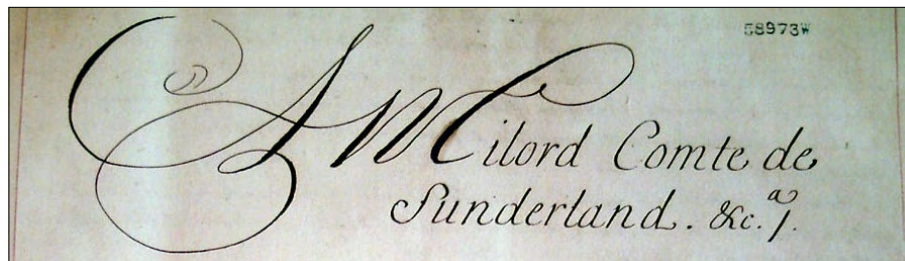 58973W
A Milord Comte de
Sunderland. &c.ª /.